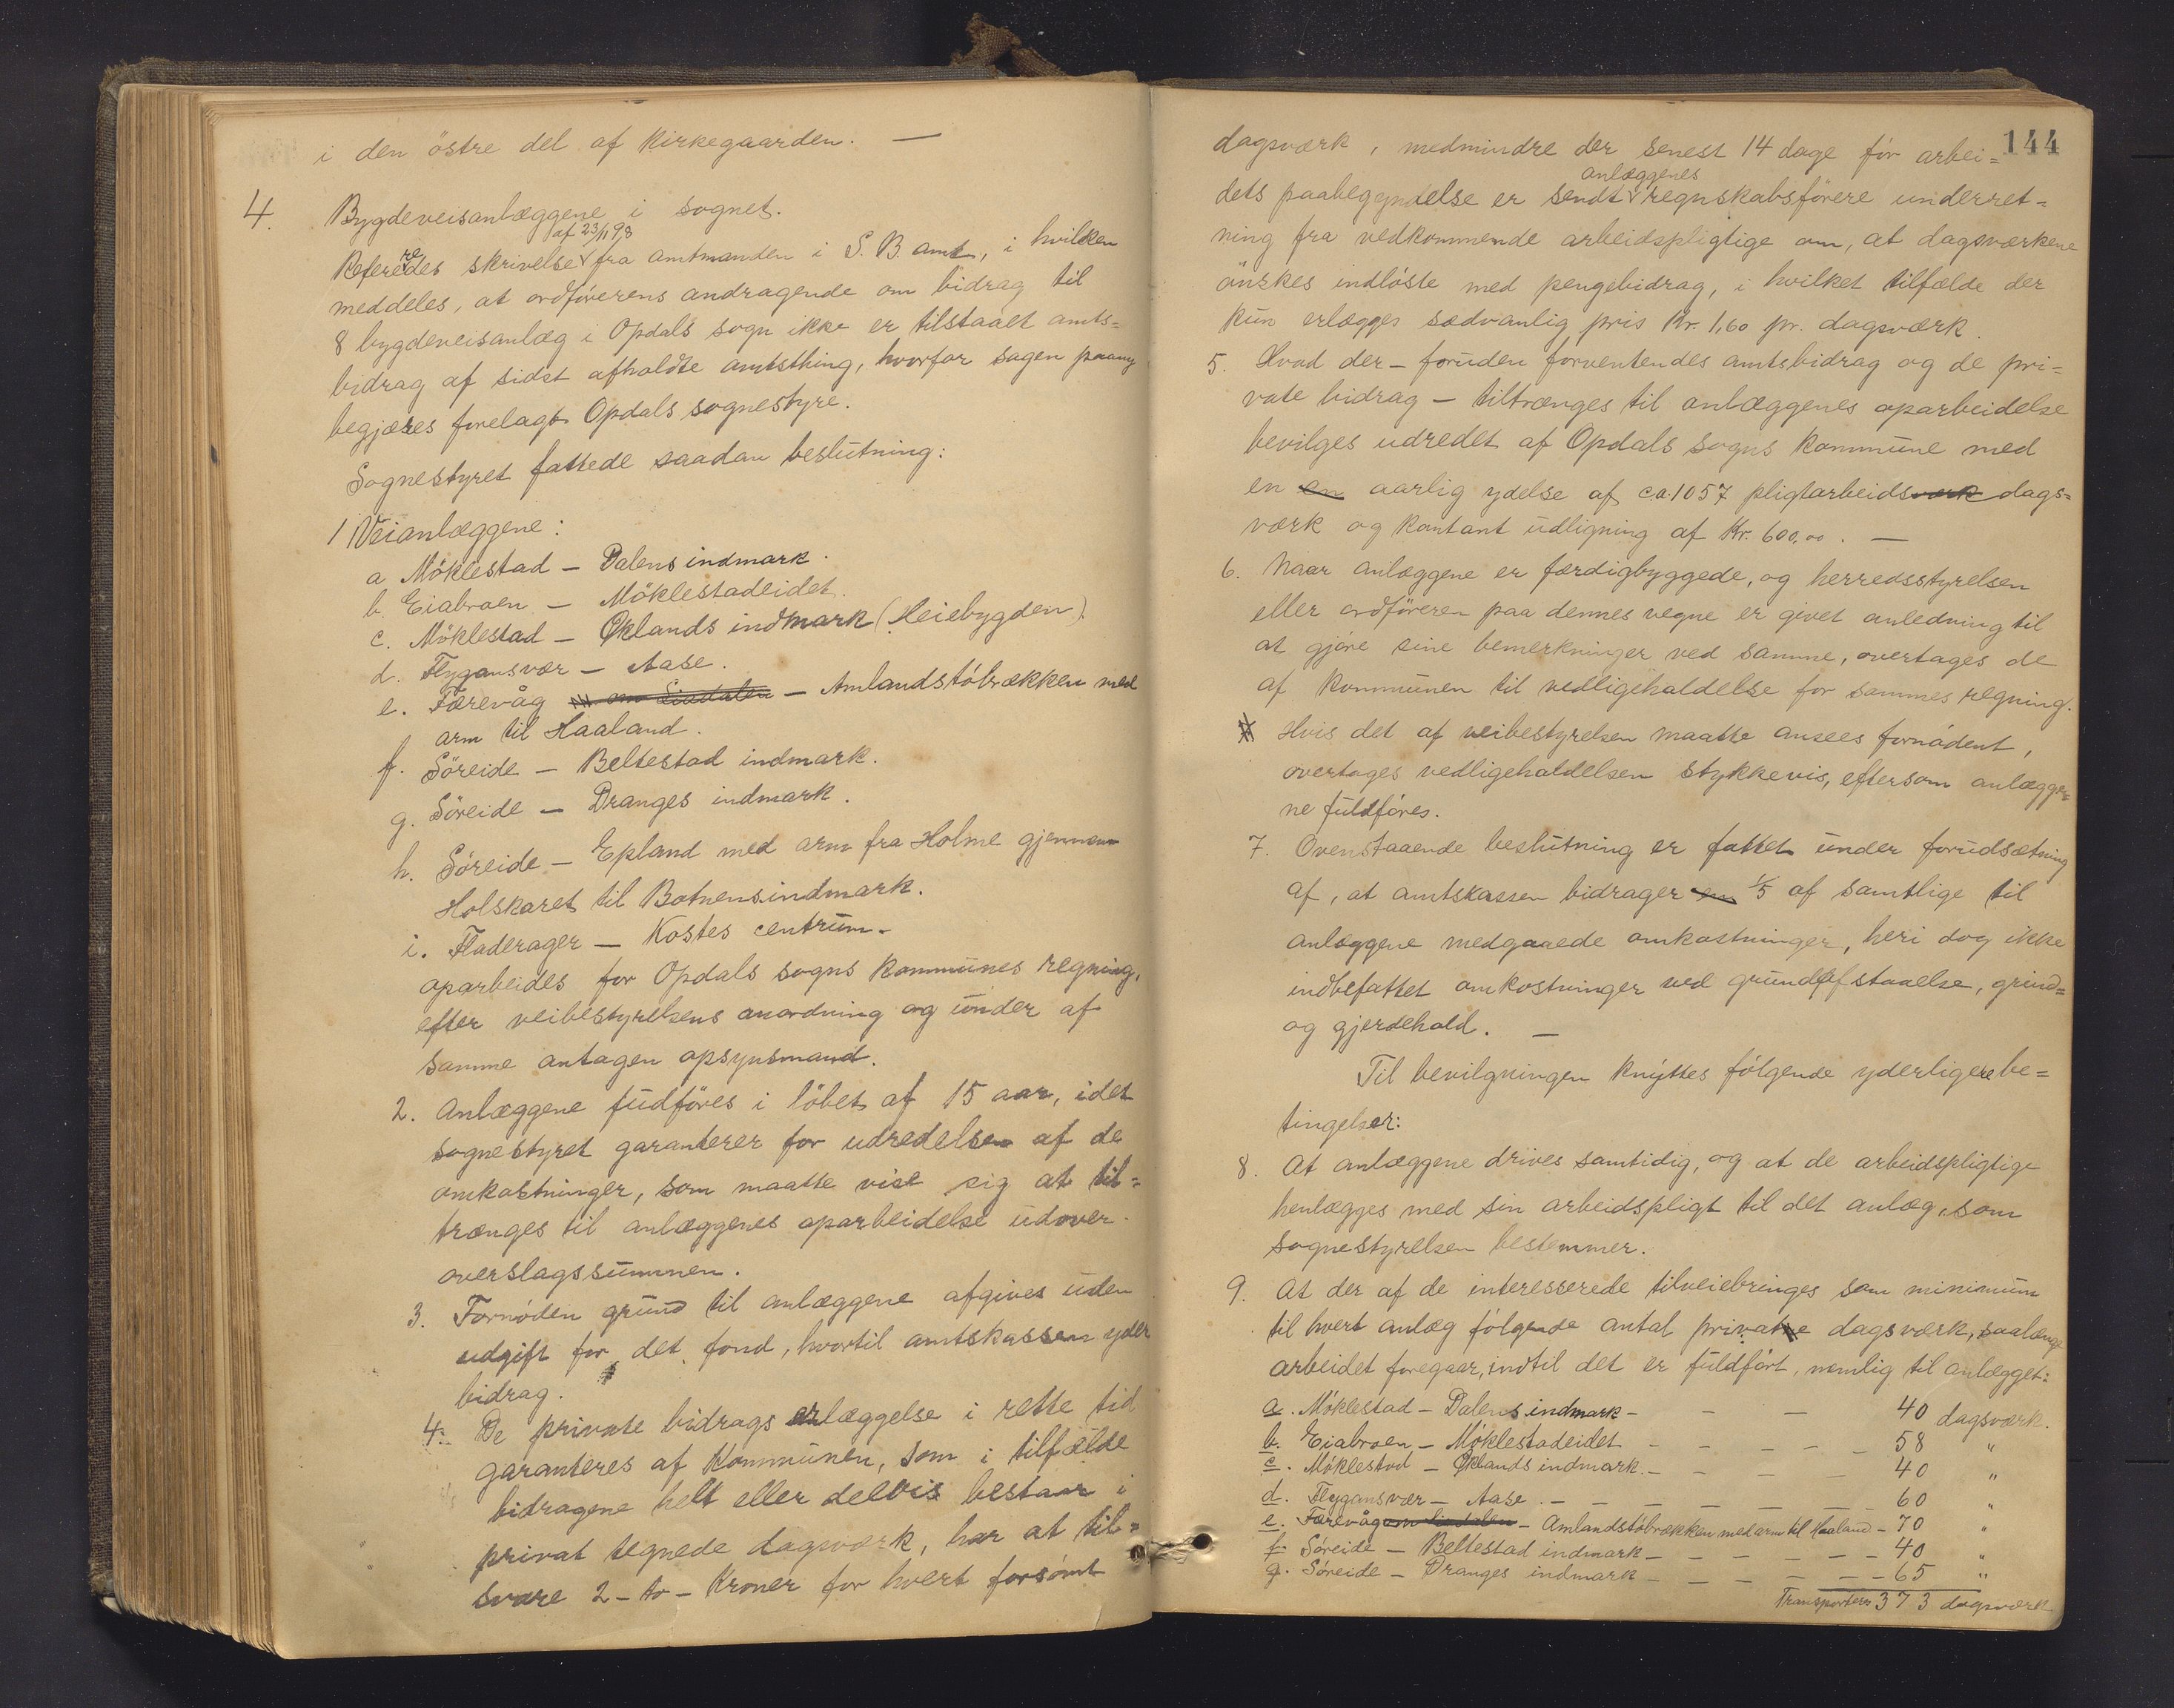 i den östre del af kirkegaarden. —
4. Bygdeveisanlæggene i sognet.
af 23/11 98
Refereredes skrivelse fra amtmanden i S. B. amt, i hvilken
meddeles, at ordförerens andragende om bidrag til
8 bygdeveisanlæg i Opdals sogn ikke er tilstaaet amts=
bidrag af sidst afholdte amtsthing, hvorfor sagen paany
begjæres forelagt Opdals sognestyre.
Sognestyret fattede saadan beslutning:
1 Veianlæggene:
a Möklestad — Dalens indmark.
b. Eiabroen — Möklestadeidet.
c. Möklestad — Øklands indmark (Heiebygden).
d. Flygansvær — Aase.
e. Færevåg — Amlandstöbrækken med
arm til Haaland.
f. Söreide — Beltestad indmark.
g. Söreide — Dranges indmark.
h. Söreide — Epland med arm fra Holme gjennem
Holskaret til Botnens indmark.
i. Fladerager — Kostes centrum.
oparbeides for Opdals sogns kommunes regning,
efter veibestyrelsens anordning og under af
samme antagen opsynsmand.
2. Anlæggene fuldföres i löbet af 15 aar, idet
sognestyret garanterer for udredelsen af de
omkostninger, som maatte vise sig at til=
trænges til anlæggenes oparbeidelse udover
overslagssummen.
3. Fornöden grund til anlæggene afgives uden
udgift for det fond, hvortil amtskassen yder
bidrag.
4. De private bidrags erlæggelse i rette tid
garanteres af Kommunen, som i tilfælde
bidragene helt eller delvis bestaar i
privat tegnede dagsværk, har at til=
svare 2 - to - Kroner for hvert forsömt
144
dagsværk, medmindre der senest 14 dage för arbei=
anlæggenes
dets paabegyndelse er sendt regnskabsförere underret=
ning fra vedkommende arbeidspligtige om, at dagsværkene
önskes indlöste med pengebidrag, i hvilket tilfælde der
kun erlægges sædvanlig pris Kr. 1,60 pr. dagsværk.
5. Hvad der — foruden forventendes amtsbidrag og de pri=
vate bidrag — tiltrænges til anlæggenes oparbeidelse
bevilges udredet af Opdals sogns kommune med
en en aarlig ydelse af ca. 1057 pligtarbeidsværk dags=
værk og kontant udligning af Kr. 600,00. —
6. Naar anlæggene er færdigbyggede, og herredsstyrelsen
eller ordföreren paa dennes vegne er givet anledning til
at gjöre sine bemerkninger ved samme, overtages de
af kommunen til vedligeholdelse for sammes regning.
Hvis det af veibestyrelsen maatte ansees fornödent,
overtages vedligeholdelsen stykkevis, eftersom anlægge
ne fuldföres.
7. Ovenstaaende beslutning er fattet under forudsætning
af, at amtskassen bidrager 1/5 af samtlige til
anlæggene medgaaede omkostninger, heri dog ikke
indbefattet omkostninger ved grundafstaaelse, grind=
og gjerdehold. —
Til bevilgningen knyttes fölgende yderligere be=
tingelser:
8. At anlæggene drives samtidig, og at de arbeidspligtige
henlægges med sin arbeidspligt til det anlæg, som
sognestyrelsen bestemmer.
9. At der af de interesserede tilveiebringes som minimum
til hvert anlæg fölgende antal private dagsværk, saalænge
arbeidet foregaar, indtil det er fuldfört, nemlig til anlægget:
a. Möklestad — Dalens indmark — — — 40 dagsværk.
b. Eiabroen — Möklestadeidet — — — — — 58 "
c. Möklestad — Øklands indmark. — — — — 40 "
d. Flygansvær — Aase. — — — — — — — 60 "
e. Færevåg — Amlandstöbrækken med arm til Haaland — 70 "
f. Söreide — Beltestad indmark — — — — — — 40 "
g. Söreide — Dranges indmark — — — — — — 65 "
Transporteres 373 dagsværk